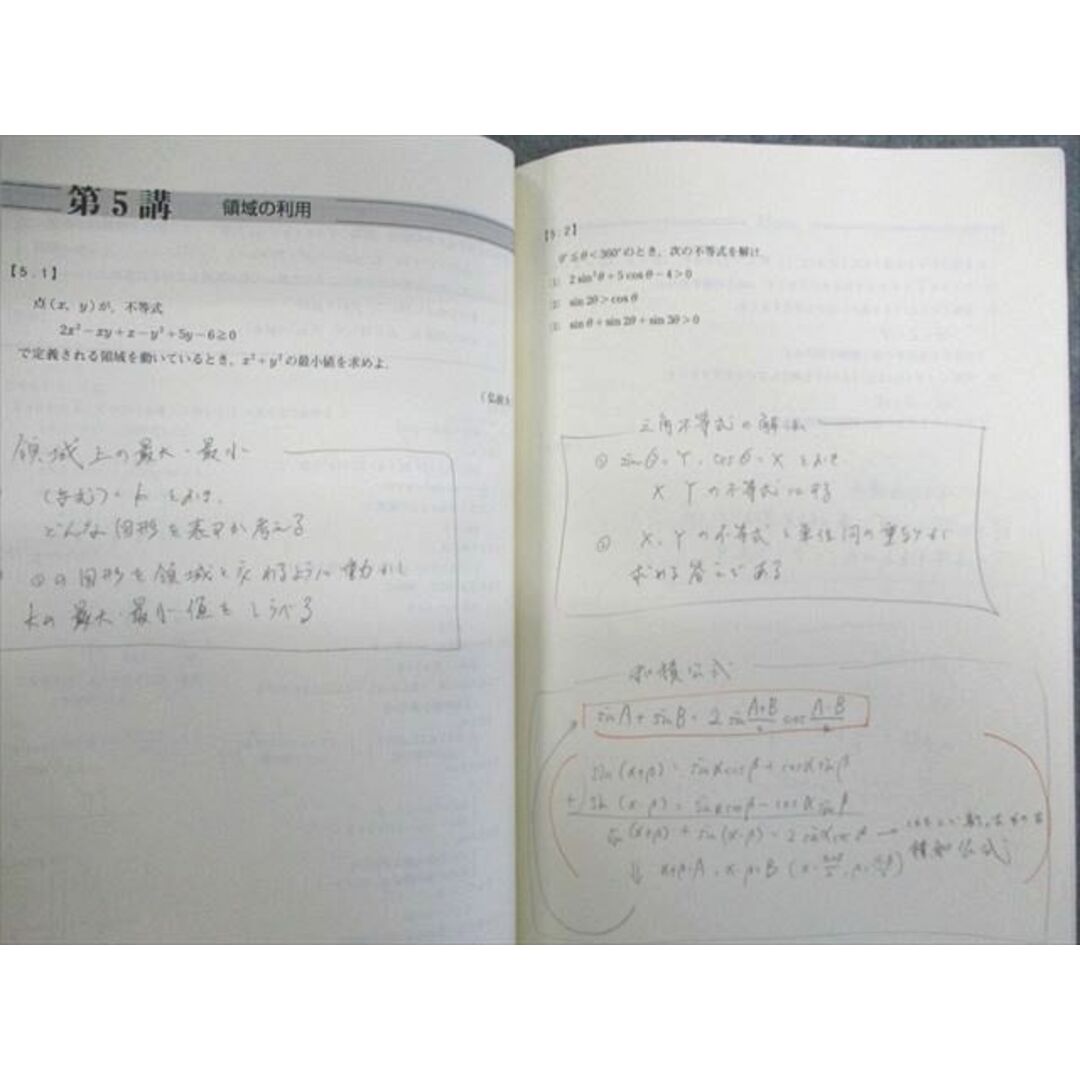 第5講 領域の利用
【5.1】
点(x, y)が,不等式
2x²-xy+x-y²+5y-6≧0
で定義される領域を動いているとき,x²+y²の最小値を求めよ.
領域上の最大・最小
(与式)=k とおき,
どんな図形を表すか考える
の図形を領域と交わるように動かし
kの最大・最小値をしらべる
【5.2】
0°≦θ<360°のとき,次の不等式を解け.
(1) 2sin²θ+5cosθ-4>0
(2) sin2θ>cosθ
(3) sinθ+sin2θ+sin3θ>0
三角不等式の解法
① sinθ=Y, cosθ=X とおき
X Yの不等式にする
② X, Yの不等式と単位円の重なりが
求める答えである
和積公式
sinA+sinB=2sin(A+B)/2 cos(A-B)/2
sin(α+β)=sinαcosβ+cosαsinβ
+) sin(α-β)=sinαcosβ-cosαsinβ
sin(α+β)+sin(α-β)=2sinαcosβ →
積和公式
⇓ α+β=A, α-β=B